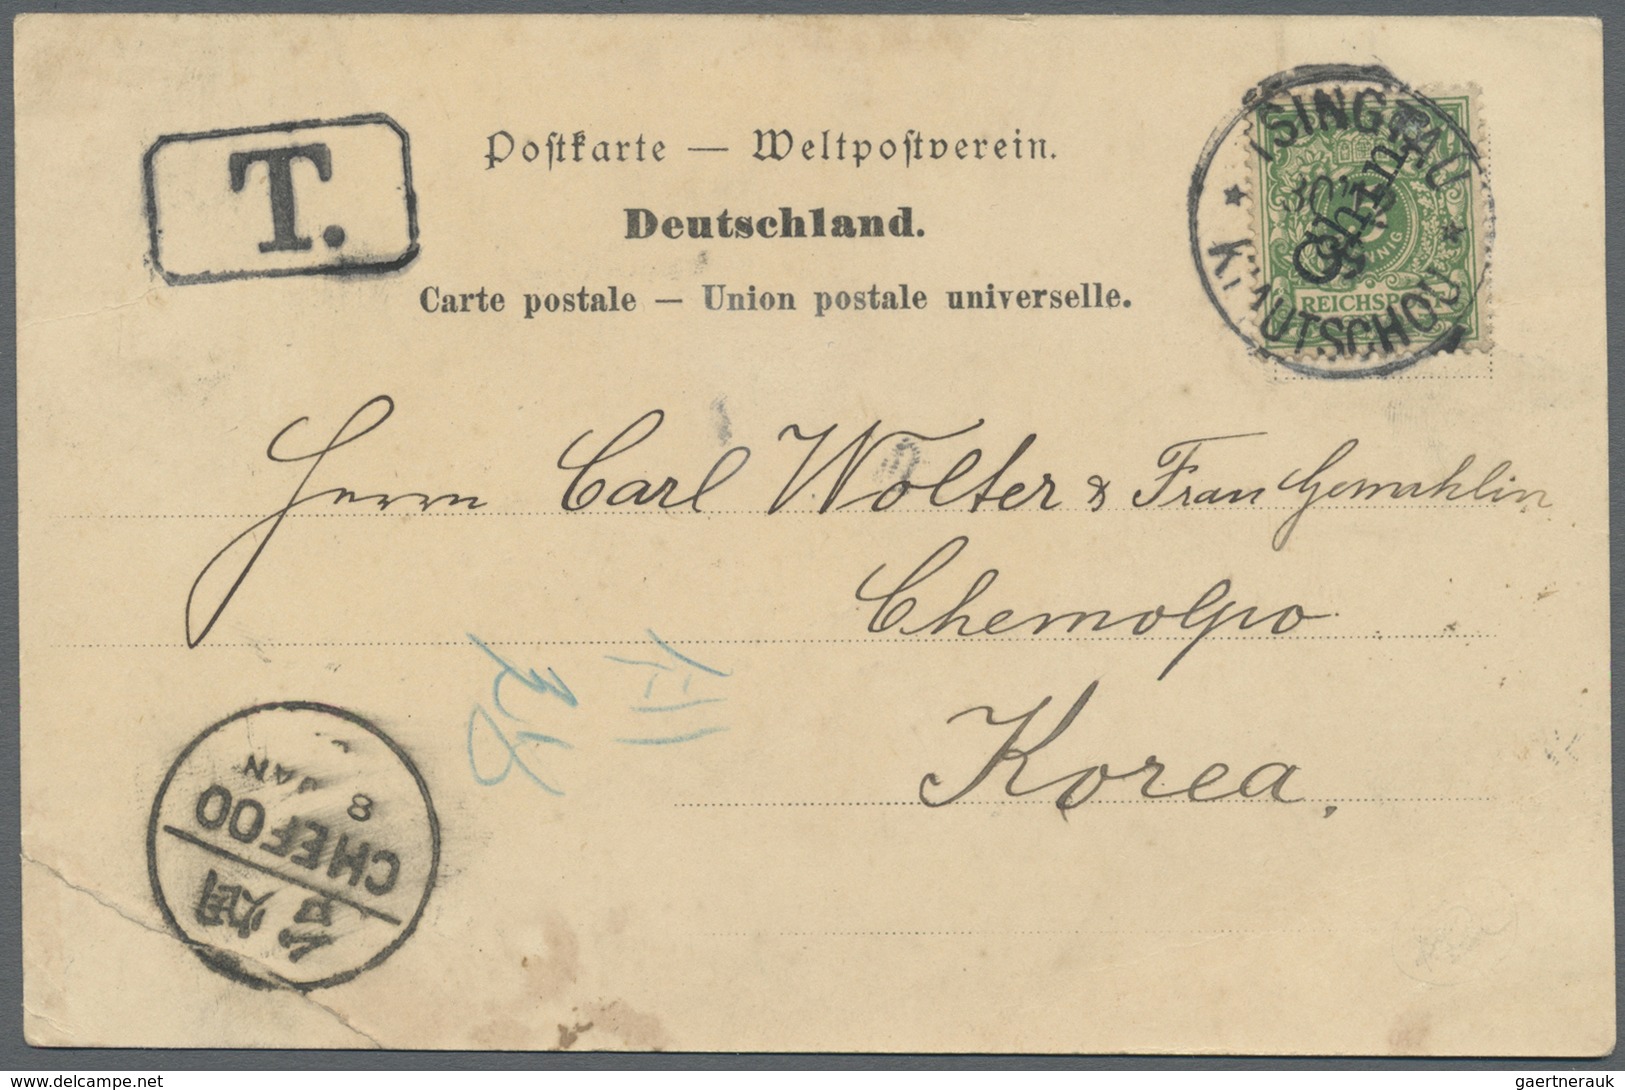 T.
Poſtkarte — Weltpoſtverein.
Deutschland.
Carte postale — Union postale universelle.
TSINGTAU
China
REICHSPOST
KIAUTSCHOU
Herrn Carl Wolter & Frau Gemahlin
Chemolpo
Korea.
8
JAN
CHEFOO
烟台
gaertnerauk